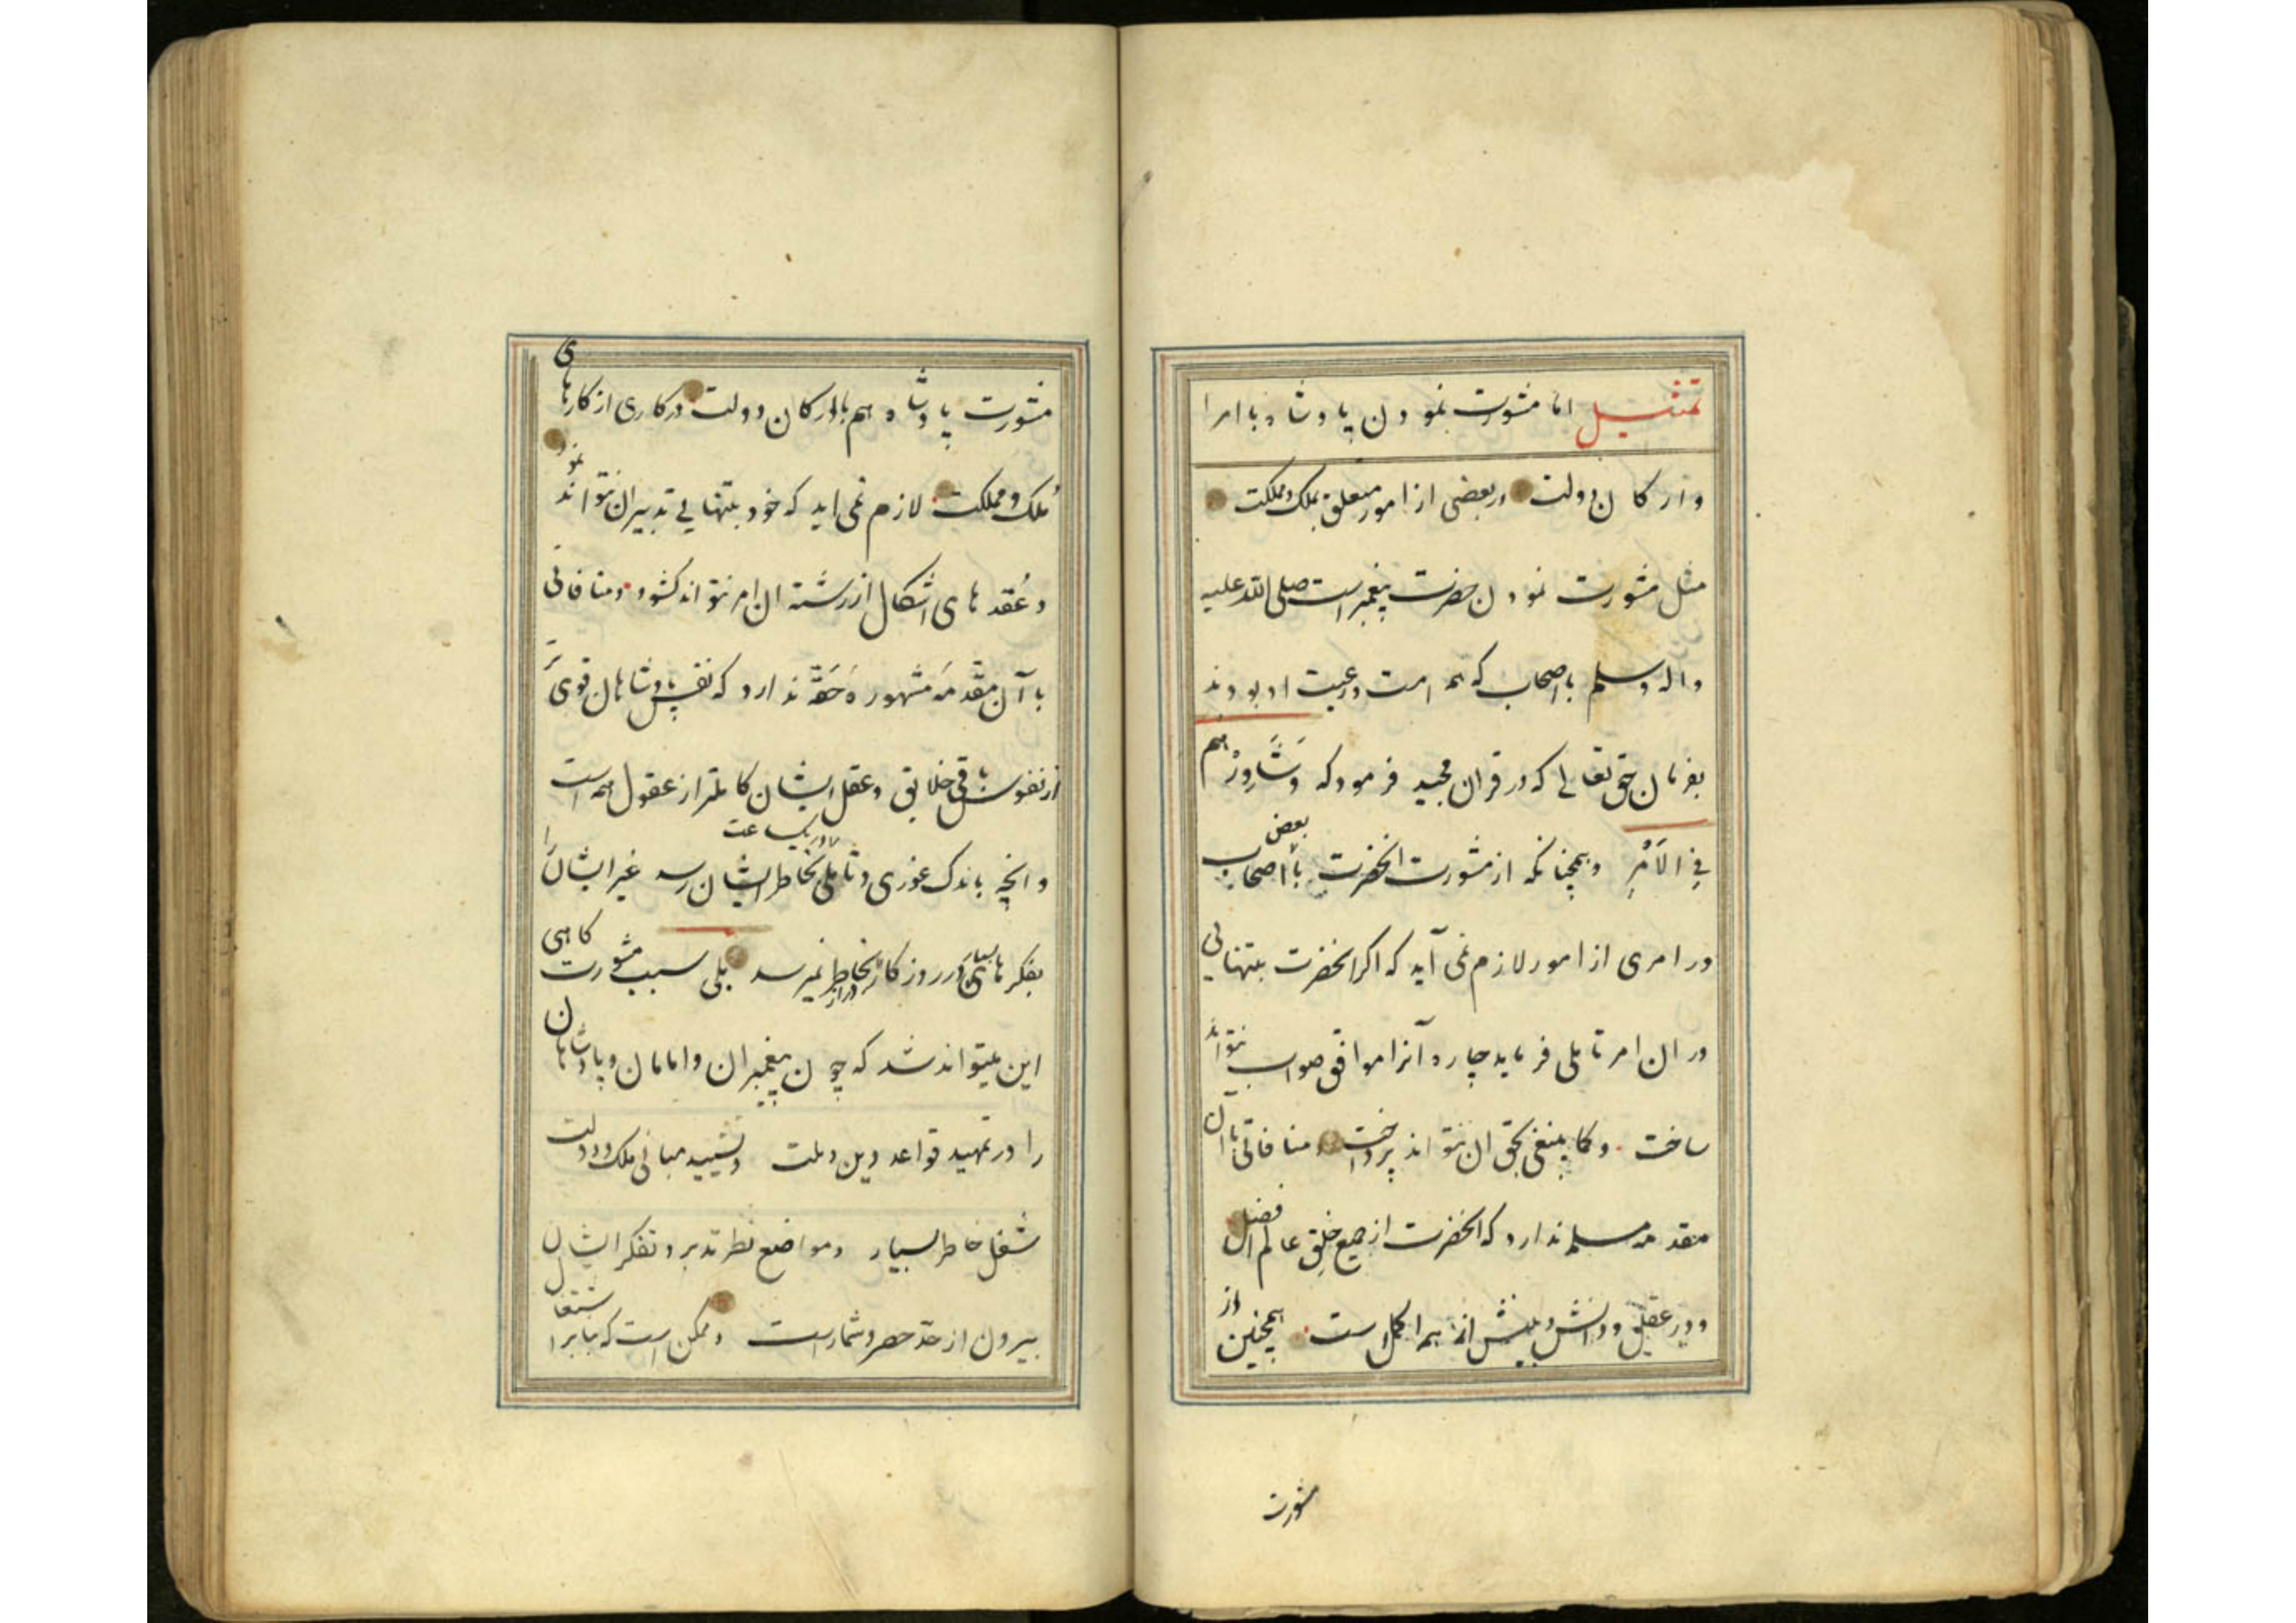 تمثیل اما مشورت نمودن پادشاه با امرا
و ارکان دولت در بعضی از امور متعلق بملک و مملکت
مثل مشورت نمودن حضرت پیغمبر است صلی الله علیه
و اله و سلم با اصحاب که همه امت و رعیت او بودند
بفرمان حق تعالی که در قران مجید فرموده که وَشَاوِرْهم
فِی الاَمْرِ و همچنانکه از مشورت انحضرت با بعض اصحاب
در امری از امور لازم نمی آید که اکر انحضرت بتنهایی
در ان امر تاملی فرماید چاره آنرا موافق صواب نتواند
ساخت و کما ینبغی بحق ان نتواند پرداخت و منافاتی با آن
مقدمه مسلم ندارد که انحضرت از جمیع خلق عالم افضل
و در عقل و دانش و بینش از همه اکمل است همچنین از
مشورت
مشورت پادشاه هم با ارکان دولت در کاری از کارهای
مُلک و مملکت لازم نمی اید که خود بتنهایی تدبیر ان نتواند نمود
و عُقدهای اشکال از رشته ان امر نتواند کشود و منافاتی
با آن مقدمه مشهوره حَقّه ندارد که نفس پادشاهان قوی تر
از نفوس باقی خلایق و عقل ایشان کاملتر از عقول همه است
و انچه باندک غوری و تاملی در یکساعت بخاطر ایشان رسد غیر ایشان را
بفکرهای بسیار در روزکار دراز بخاطر نمیرسد بلی سبب مشورت کاهی
این میتواند شد که چون پیغمبران و امامان و پادشاهان
را در تمهید قواعد دین و ملت و تشیید مبانی ملک و دولت
شغل خاطر بسیار و مواضع نظر تدبر و تفکر ایشان
بیرون از حدّ حصر و شمار است و ممکن است که بنابر اشتغال